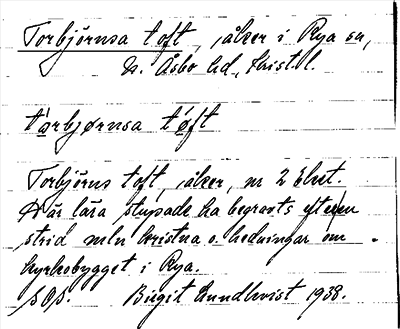 Torbjörnsa toft, åker i Rya sn,
N. Åsbo hd., Kristl.
tårbjørnsa tøft
Torbjörns toft, åker, nr 2 Elvet.
Där lära stupade ha begravts efter en
strid mln kristna o. hedningar om
kyrkobygget i Rya.
Birgit Lundkvist 1938.